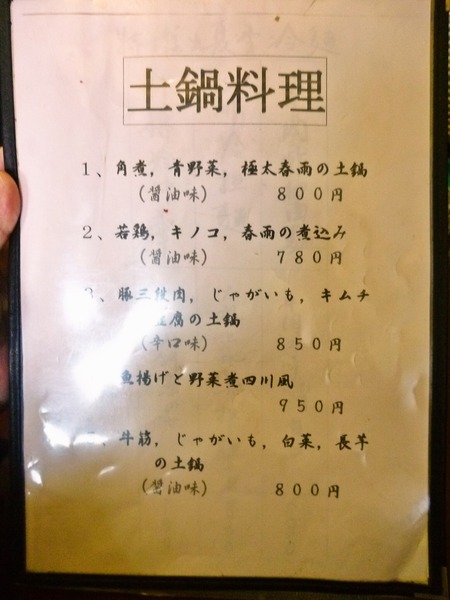 土鍋料理
1、角煮，青野菜，極太春雨の土鍋
（醤油味） ８００円
2、若鶏，キノコ，春雨の煮込み
（醤油味） ７８０円
3、豚三枚肉，じゃがいも，キムチ
豆腐の土鍋
（辛口味） ８５０円
魚揚げと野菜煮四川風
９５０円
、牛筋，じゃがいも，白菜，長芋
の土鍋
（醤油味） ８００円